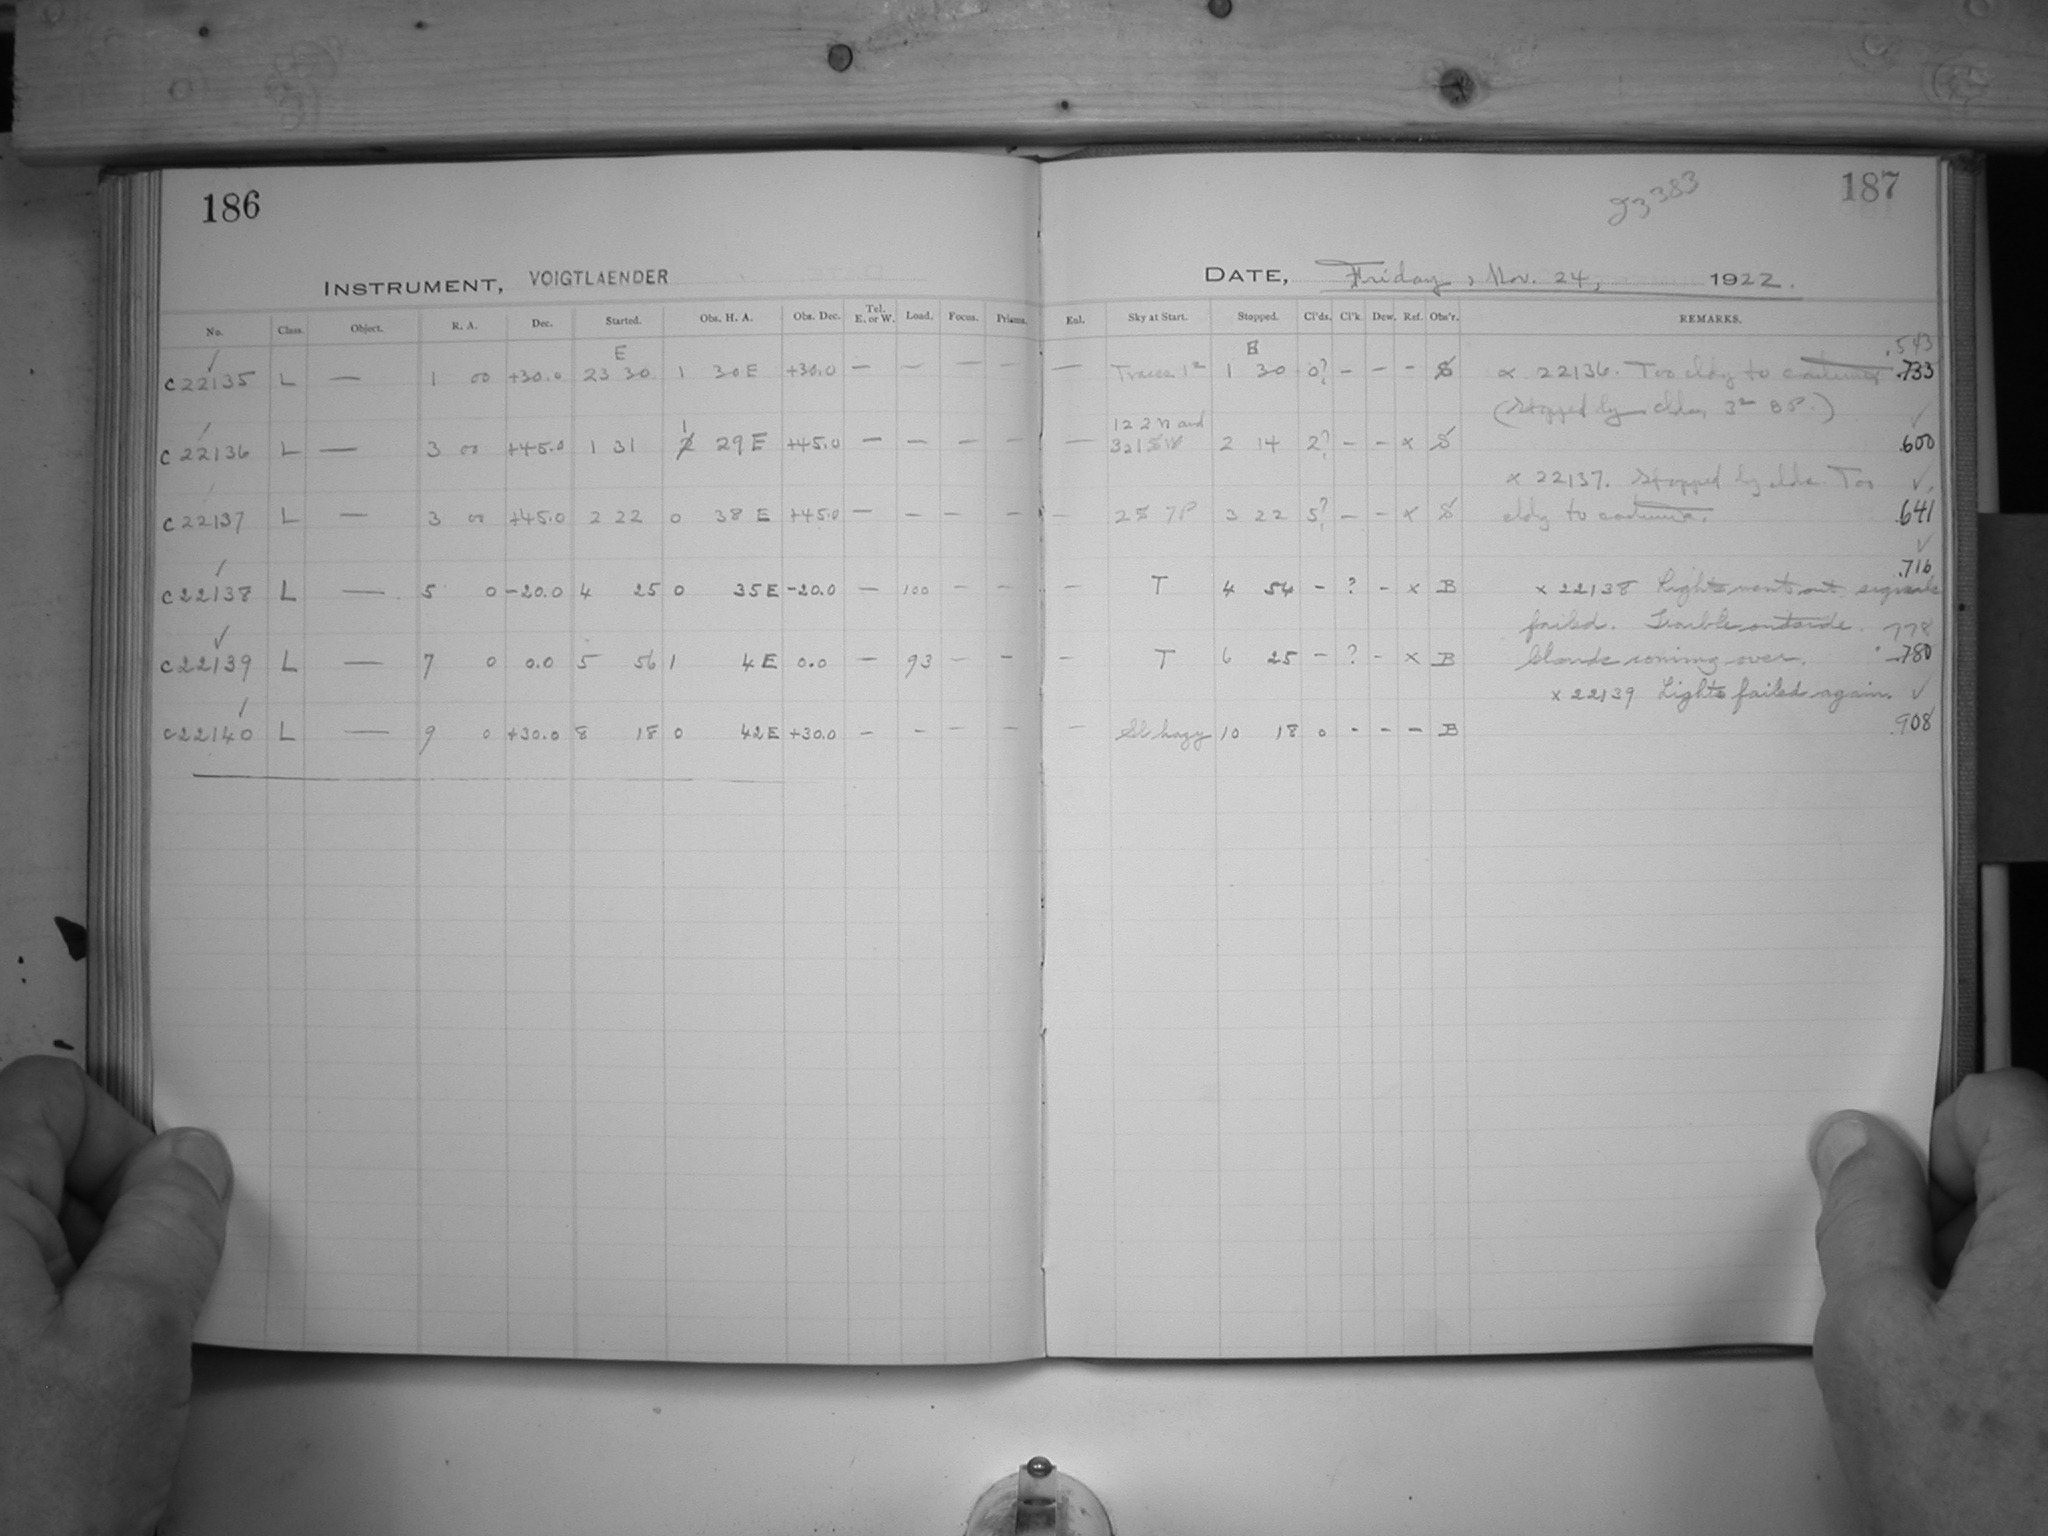 186
INSTRUMENT, VOIGTLAENDER
No. Class. Object. R. A. Dec. Started. Obs. H. A. Obs. Dec. Tel. E. or W. Load. Focus. Prisms.
E
C22135 L — 1 00 +30.0 23 30 1 30E +30.0 — — — — 
1
C22136 L — 3 00 +45.0 1 31 2 29E +45.0 — — — —
C22137 L — 3 00 +45.0 2 22 0 38 E +45.0 — — — —
C22138 L — 5 0 -20.0 4 25 0 35E -20.0 — 100 — —
C22139 L — 7 0 0.0 5 56 1 4E 0.0 — 93 — —
C22140 L — 9 0 +30.0 8 18 0 42E +30.0 — — — —
187
33383
DATE, Friday, Nov. 24, 1922.
Enl. Sky at Start. Stopped. Cl'ds. Cl'k. Dew. Ref. Obs'r. REMARKS.
E .543
— Traces 1 30 0? — — — S x 22136. Too cldy to continue .733
(Stopped by clds,
12 2 N and
— 2 14 2? — — x S .600
x 22137. Stopped by clds. Too
— 2S 7P 3 22 5? — — x S cldy to continue. .641
.716
— T 4 54 — ? — x B x 22138 Lights went out signals
failed. Trouble outside. 778
— T 6 25 — ? — x B Clouds coming over. .780
x 22139 Lights failed again.
— Sl hazy 10 18 0 — — — B .908